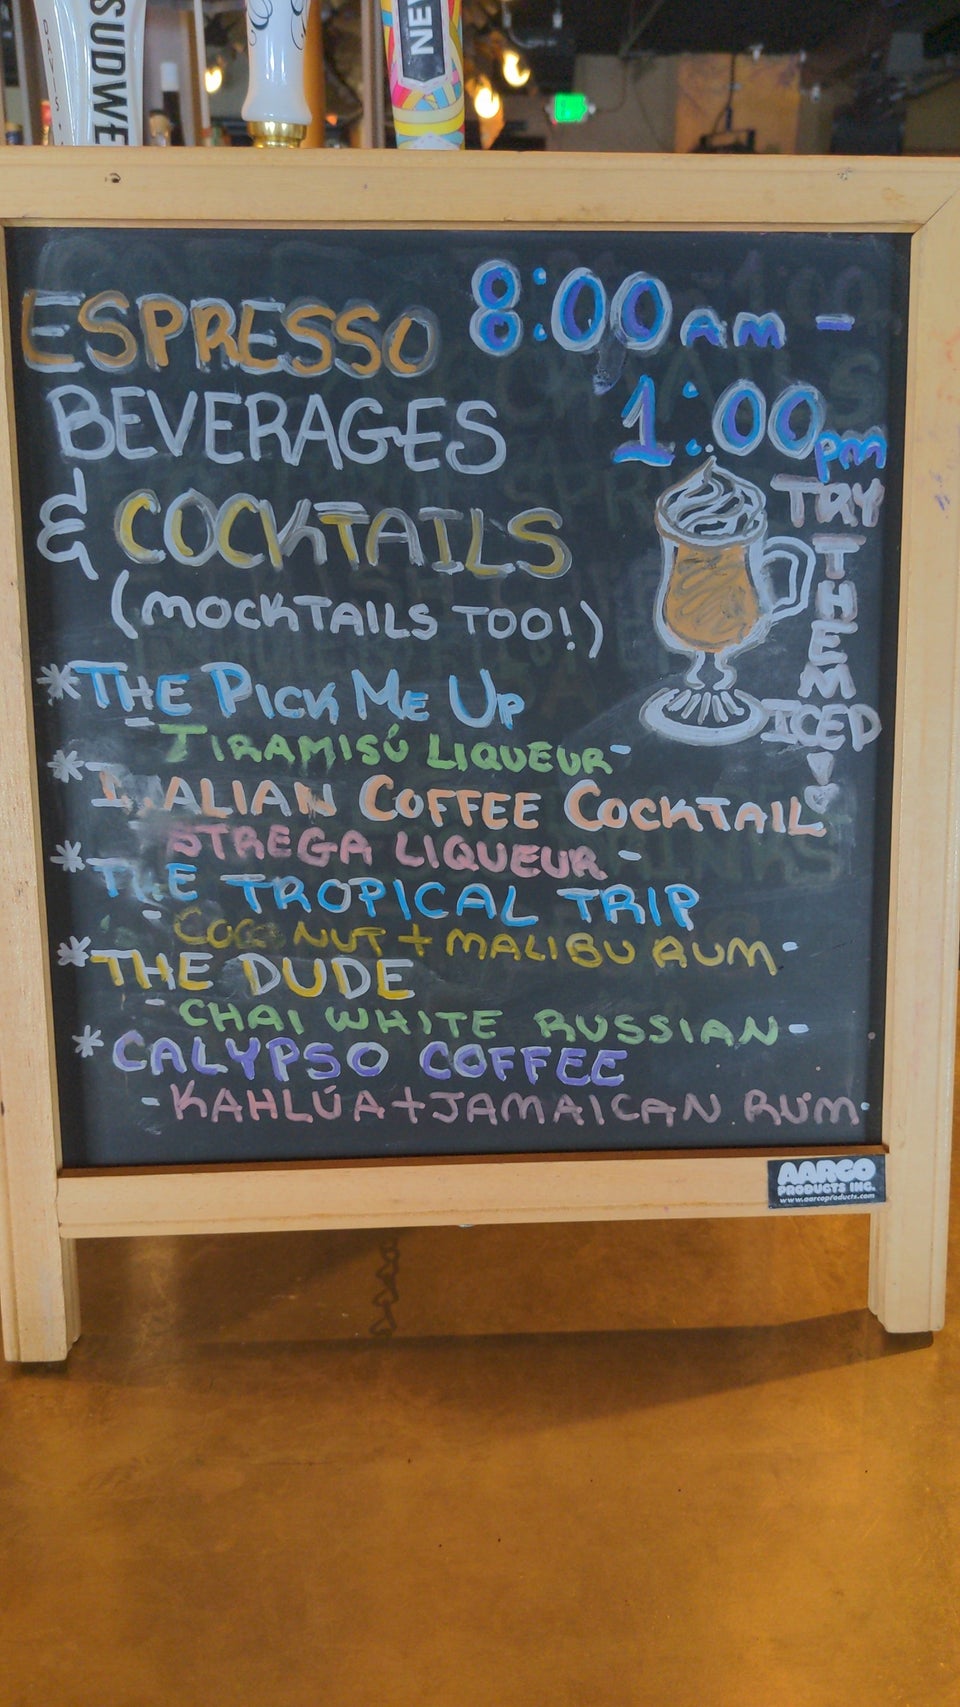 SUDWE
NEW
ESPRESSO 8:00 AM -
BEVERAGES 1:00 PM
& COCKTAILS
(MOCKTAILS TOO!)
TRY
THEM
ICED
*THE PICK ME UP
TIRAMISÚ LIQUEUR-
*ITALIAN COFFEE COCKTAIL
STREGA LIQUEUR-
*THE TROPICAL TRIP
COCONUT + MALIBU RUM-
*THE DUDE
CHAI WHITE RUSSIAN-
*CALYPSO COFFEE
-KAHLÚA+JAMAICAN RUM-
AARCO
PRODUCTS INC.
www.aarcoproducts.com